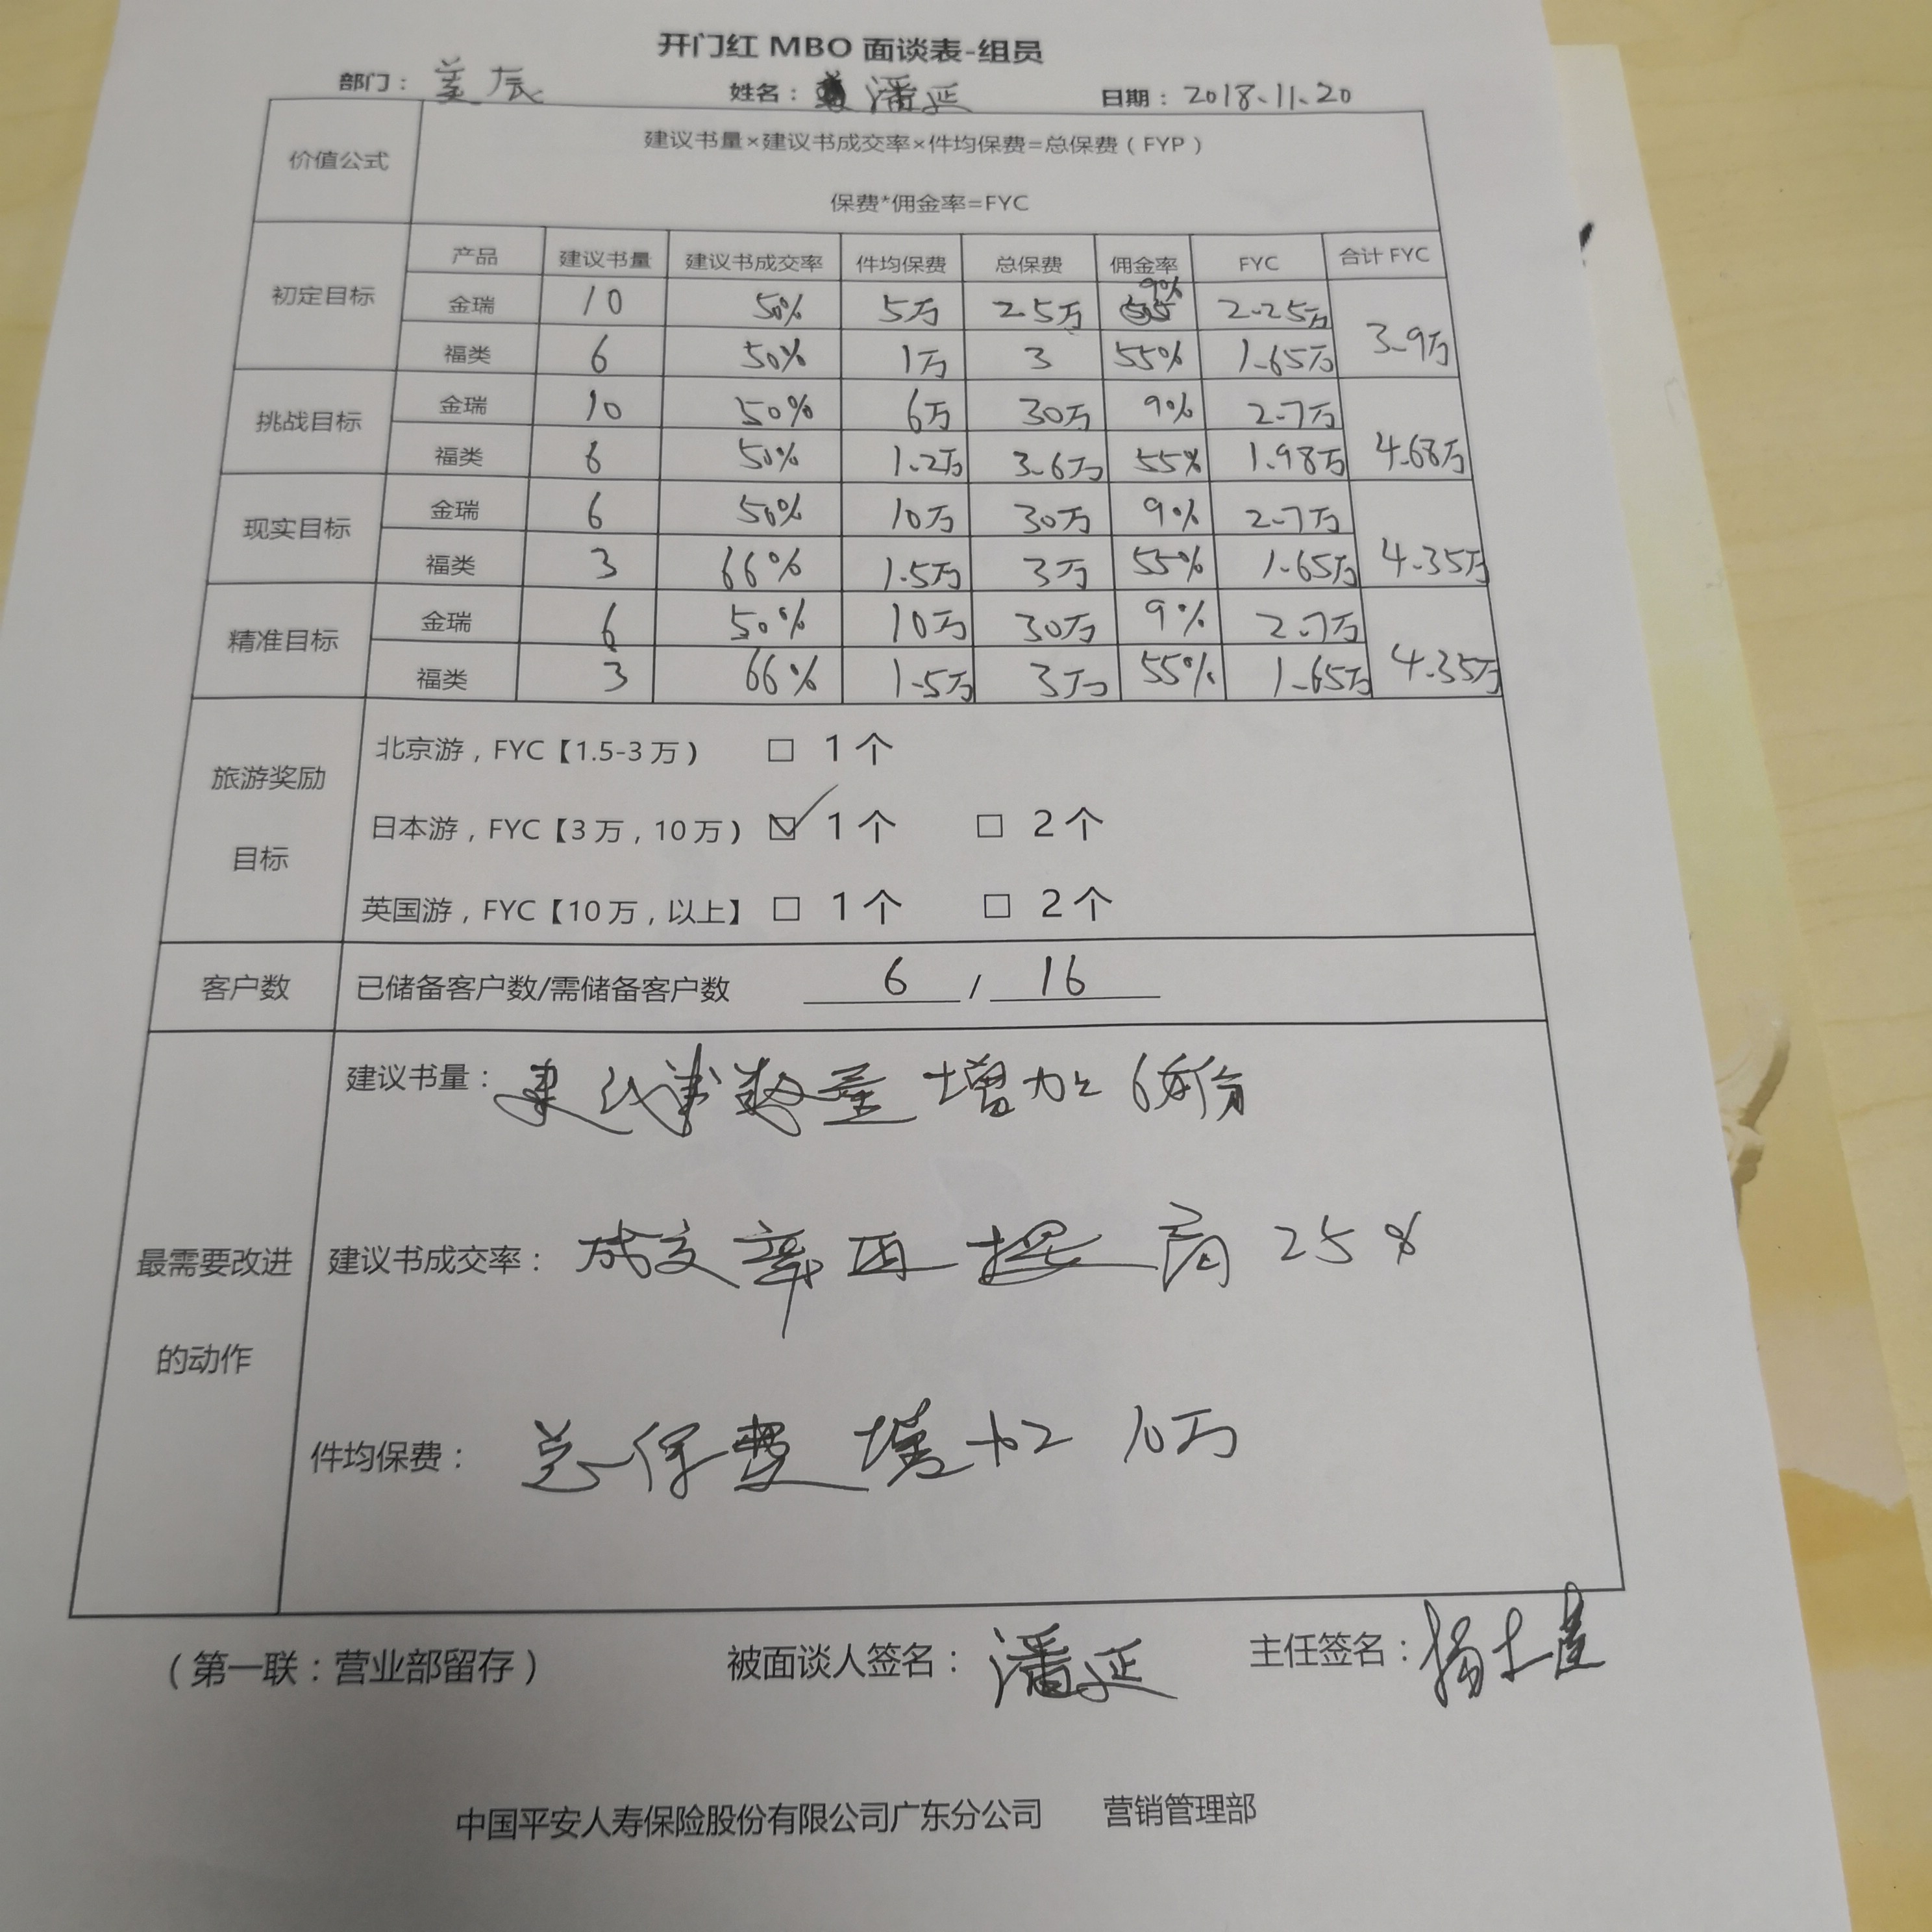 开门红 MBO 面谈表-组员
部门： 美辰 姓名： 潘延 日期： 2018.11.20
价值公式
建议书量×建议书成交率×件均保费=总保费（FYP）
保费*佣金率=FYC
产品 建议书量 建议书成交率 件均保费 总保费 佣金率 FYC 合计 FYC
初定目标
金瑞 10 50% 5万 25万 9% 2.25万 3.9万
福类 6 50% 1万 3 55% 1.65万
挑战目标
金瑞 10 50% 6万 30万 9% 2.7万 4.68万
福类 6 50% 1.2万 3.6万 55% 1.98万
现实目标
金瑞 6 50% 10万 30万 9% 2.7万 4.35万
福类 3 66% 1.5万 3万 55% 1.65万
精准目标
金瑞 6 50% 10万 30万 9% 2.7万 4.35万
福类 3 66% 1.5万 3万 55% 1.65万
旅游奖励
目标
北京游，FYC【1.5-3 万） □ 1个
日本游，FYC【3 万，10 万） ☑ 1个 □ 2个
英国游，FYC【10 万，以上】 □ 1个 □ 2个
客户数 已储备客户数/需储备客户数 6 / 16
最需要改进
的动作
建议书量： 建议书数量增加6份
建议书成交率： 成交率再提高25%
件均保费： 总保费增加10万
（第一联：营业部留存） 被面谈人签名： 潘延 主任签名：
中国平安人寿保险股份有限公司广东分公司 营销管理部